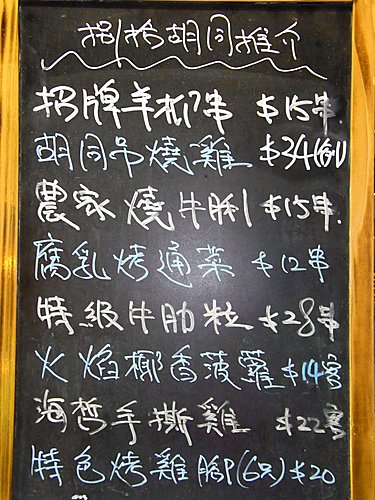 捌拾胡同推介
招牌羊柳串 $15串
胡同吊燒雞 $34(例)
農家燒牛脷 $15串
腐乳烤通菜 $12串
特級牛肋粒 $28串
火焰椰香菠蘿 $14客
海哲手撕雞 $22客
特色烤雞腳(6只) $20